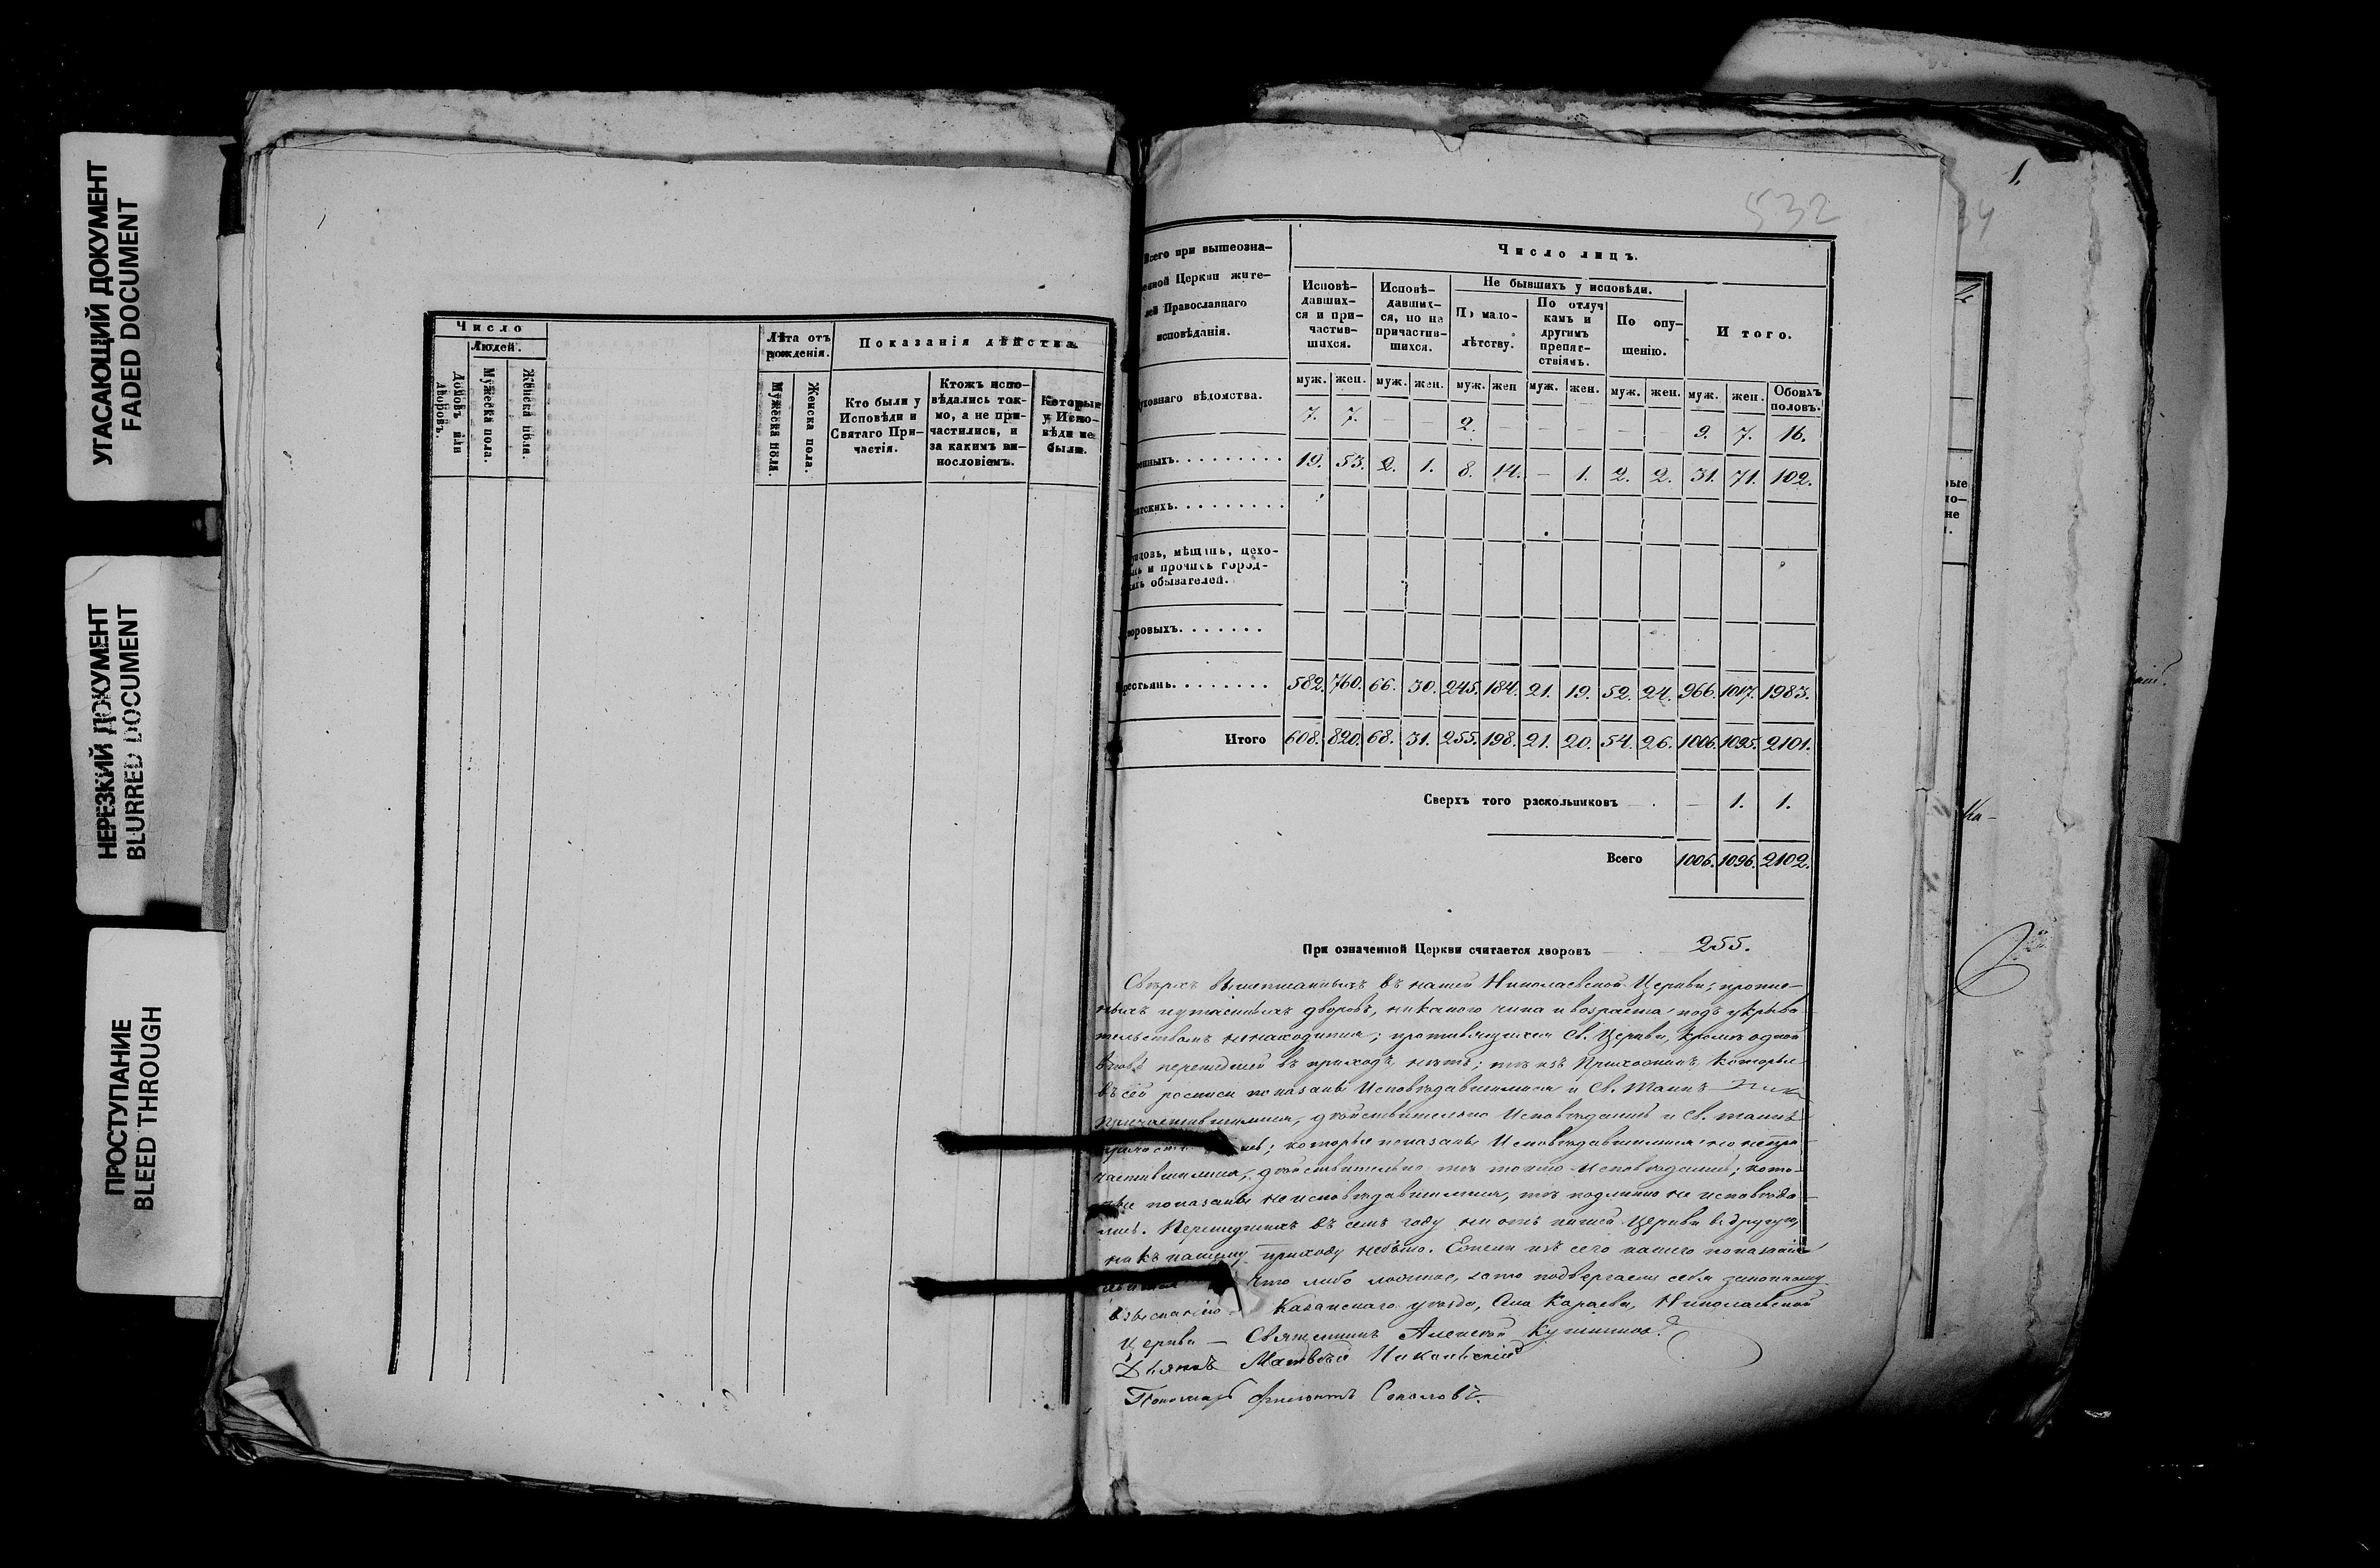 УГАСАЮЩИЙ ДОКУМЕНТ
FADED DOCUMENT
НЕРЕЗКИЙ ДОКУМЕНТ
BLURRED DOCUMENT
ПРОСТУПАНИЕ
BLEED THROUGH
Число
Людей.
Домовъ или дворовъ.
Мужеска пола.
Женска пола.
Лѣта отъ рожденія.
Мужеска пола.
Женска пола.
Показанія дѣйства.
Кто были у
Исповѣди и
Святаго При-
частія.
Ктожъ испо-
вѣдались ток-
мо, а не при-
частились, и
за какимъ ви-
нословіемъ.
Которые
у Испо-
вѣди не
были.
532
1.
Всего при вышеозна-
ченной Церкви жите-
лей Православнаго
исповѣданія.
Число лицъ.
Исповѣ-
давших-
ся и при-
частив-
шихся.
Исповѣ-
давших-
ся, но не
причастив-
шихся.
Не бывшихъ у исповѣди.
По мало-
лѣтству.
По отлуч
камъ и
другимъ
препят-
ствіямъ.
По опу-
щенію.
Итого.
муж. жен. муж. жен. муж. жен муж. жен. муж. жен. муж. жен. Обоихъ половъ.
Духовнаго вѣдомства. 7. 7. — — 2. — — — — — 9. 7. 16.
Военныхъ. 19. 53. 2. 1. 8. 14. — 1. 2. 2. 31. 71. 102.
Статскихъ.
Купцовъ, мѣщанъ, цехо-
выхъ и прочихъ город-
скихъ обывателей.
Дворовыхъ.
Крестьянъ. 582. 760. 66. 30. 245. 184. 21. 19. 52. 24. 966. 1017. 1983.
Итого 608. 820. 68. 31. 255. 198. 21. 20. 54. 26. 1006. 1095. 2101.
Сверхъ того раскольниковъ — 1. 1.
Всего 1006. 1096. 2102.
При означенной Церкви считается дворовъ 255.
Сверхъ вышеписанныхъ въ нашей Николаевской Церкви,
утаенныхъ дворовъ, никакого чина и возраста, подъ укрыва-
тельствомъ ненаходится; противящихся Св. Церкви, кромѣ одной
вновь перешедшей въ приходъ, нѣтъ; тѣ изъ Прихожанъ, которые
въ сей росписи показаны Исповѣдавшимися и Св. Таинъ
Причастившимися, дѣйствительно Исповѣдались и Св. таинъ
которые показаны Исповѣдавшимися, но непри-
частившимися, дѣйствительно тѣ точно Исповѣдались; кото-
рые показаны неисповѣдавшимися, тѣ подлинно не исповѣда-
лись. Перешедшихъ въ семъ году ни отъ нашей Церкви въ другую,
ни къ нашему приходу небыло. Ежели изъ сего нашего показанія
что либо ложное, зато подвергаемъ себя законному
взысканію. Казанскаго уѣзда, Села Караева, Николаевской
Церкви — Священникъ Алексѣй
Дьяконъ Матвѣй Никольскій
Пономарь Соколовъ.